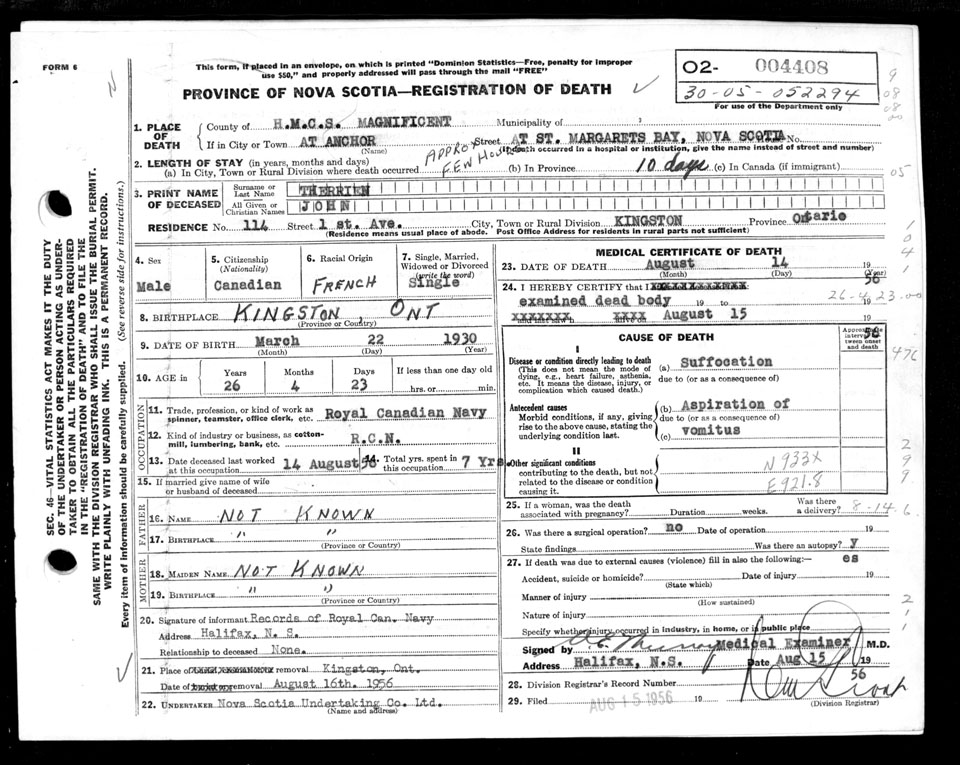 FORM 6
This form, if placed in an envelope, on which is printed "Dominion Statistics—Free, penalty for improper
use $50," and properly addressed will pass through the mail "FREE"
PROVINCE OF NOVA SCOTIA—REGISTRATION OF DEATH
O2- 004408
30-05-052294
For use of the Department only
1. PLACE OF DEATH
County of H.M.C.S. MAGNIFICENT Municipality of
If in City or Town AT ANCHOR Street AT ST. MARGARETS BAY, NOVA SCOTIA No.
(Name) (If death occurred in a hospital or institution, give the name instead of street and number)
2. LENGTH OF STAY (in years, months and days)
(a) In City, Town or Rural Division where death occurred APPROX FEW HOURS (b) In Province 10 days (c) In Canada (if immigrant)
3. PRINT NAME OF DECEASED
Surname or Last Name THERRIEN
All Given or Christian Names JOHN
RESIDENCE No. 114 Street 1 st. Ave. City, Town or Rural Division KINGSTON Province Ontario
(Residence means usual place of abode. Post Office Address for residents in rural parts not sufficient)
SEC. 46—VITAL STATISTICS ACT MAKES IT THE DUTY
OF THE UNDERTAKER OR PERSON ACTING AS UNDER-
TAKER TO OBTAIN ALL THE PARTICULARS REQUIRED
IN THE "REGISTRATION OF DEATH" AND TO FILE THE
SAME WITH THE DIVISION REGISTRAR WHO SHALL ISSUE THE BURIAL PERMIT.
WRITE PLAINLY WITH UNFADING INK. THIS IS A PERMANENT RECORD.
Every item of information should be carefully supplied. (See reverse side for instructions.)
4. Sex
Male
5. Citizenship
(Nationality)
Canadian
6. Racial Origin
FRENCH
7. Single, Married,
Widowed or Divorced
(write the word)
Single
8. BIRTHPLACE KINGSTON, ONT
(Province or Country)
9. DATE OF BIRTH March 22 1930
(Month) (Day) (Year)
10. AGE in
Years Months Days If less than one day old
26 4 23 hrs. or min.
OCCUPATION
11. Trade, profession, or kind of work as
spinner, teamster, office clerk, etc. Royal Canadian Navy
12. Kind of industry or business, as cotton-
mill, lumbering, bank, etc. R.C.N.
13. Date deceased last worked
at this occupation 14 August 56
14. Total yrs. spent in
this occupation 7 Yrs.
15. If married give name of wife
or husband of deceased
FATHER
16. NAME NOT KNOWN
17. BIRTHPLACE " "
(Province or Country)
MOTHER
18. MAIDEN NAME NOT KNOWN
19. BIRTHPLACE " "
(Province or Country)
20. Signature of informant Records of Royal Can. Navy
Address Halifax, N. S.
Relationship to deceased None.
21. Place of removal Kingston, Ont.
Date of removal August 16th. 1956
22. UNDERTAKER Nova Scotia Undertaking Co. Ltd.
(Name and address)
MEDICAL CERTIFICATE OF DEATH
23. DATE OF DEATH August 14 19 56
(Month) (Day) (Year)
24. I HEREBY CERTIFY that I xxxxxxxxxxxxx
examined dead body 19 to
xxxxxxx xxxx August 15 19 56
26-4-23.00
CAUSE OF DEATH
Approximate interval between onset and death
I
Disease or condition directly leading to death
(This does not mean the mode of
dying, e.g., heart failure, asthenia,
etc. It means the disease, injury, or
complication which caused death.)
(a) Suffocation
due to (or as a consequence of)
Antecedent causes
Morbid conditions, if any, giving
rise to the above cause, stating the
underlying condition last.
(b) Aspiration of
due to (or as a consequence of)
(c) vomitus
II
Other significant conditions
contributing to the death, but not
related to the disease or condition
causing it.
N 933X
E921.8
25. If a woman, was the death
associated with pregnancy? Duration weeks. Was there
a delivery? 8-14.6
26. Was there a surgical operation? no Date of operation 19
State findings Was there an autopsy? yes
27. If death was due to external causes (violence) fill in also the following:—
Accident, suicide or homicide? Date of injury 19
(State which)
Manner of injury
(How sustained)
Nature of injury
Specify whether injury occurred in industry, in home, or in public place
Signed by Medical Examiner M.D.
Address Halifax, N.S. Date Aug 15 19 56
28. Division Registrar's Record Number
29. Filed AUG 15 1956 19
(Division Registrar)